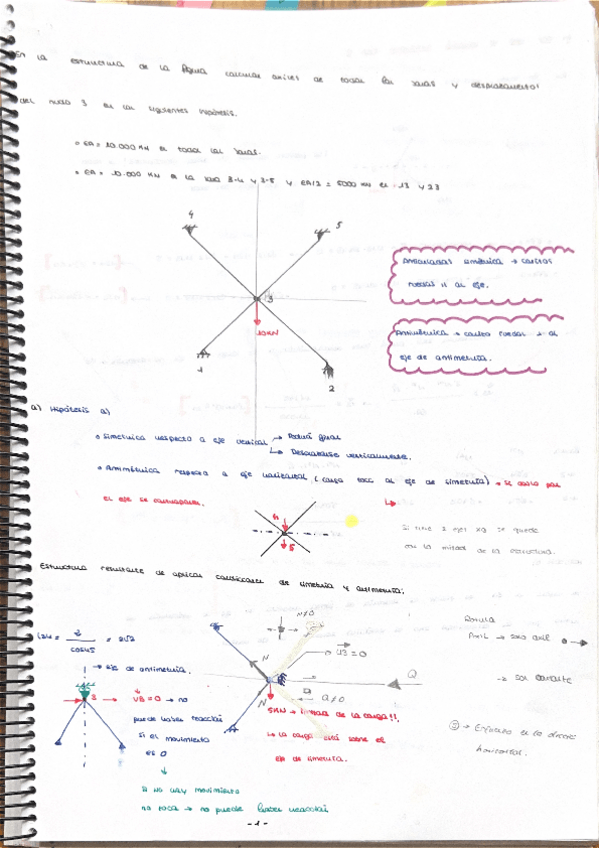 En la estructura de la figura calcular axiles de todas las barras y desplazamientos
del nudo 3 en las siguientes hipótesis.
EA = 10.000 KN en todas las barras.
EA = 10.000 KN en la barra 3-4 y 3-5 y EA/2 = 5000 KN en 13 y 23
4
5
3
10KN
1
2
simétrica → cortas
fuerzas || al eje.
Antimétrica → corta fuerzas ⊥ al
eje de antimetría.
a) Hipótesis a)
Simetría respecto a eje vertical → Podrá girar
↳ Desplazarse verticalmente.
Antimétrica respecto a eje horizontal (carga al eje de simetría) → se corta por
el eje se
Si tiene 2 ejes se puede
con la mitad de la estructura.
5
Estructura resultante de aplicar condiciones de simetría y antimetría:
cos45
→ eje de antimetría.
3
VB = 0 → no
puede haber reacción
si el movimiento
es 0
↓
Si no hay movimiento
no toca → no puede haber reacción
N≠0
N
N
Q
Q≠0
5KN → mitad de la carga!!
↳ la carga está sobre el
eje de simetría.
Axil → solo axil
→ sol cortante
horizontal.
-1-